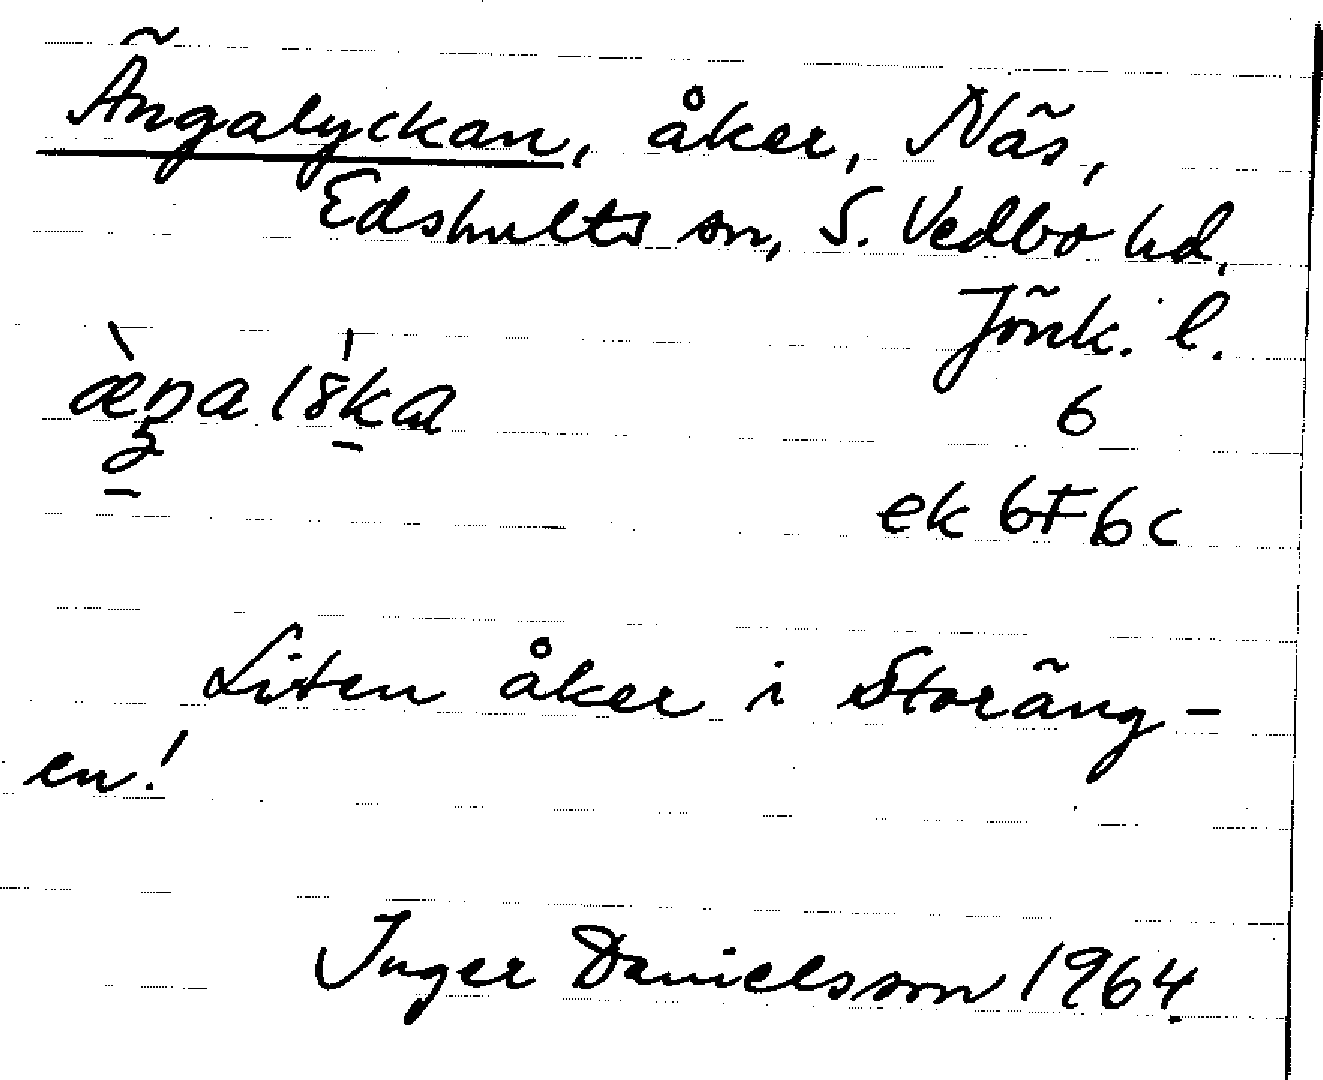 Ängalyckan, åker, Näs,
Edshults sn, S. Vedbo hd,
Jönk. l.
6
ek 6F6c
Liten åker i Storäng-
en!
Inger Danielsson 1964